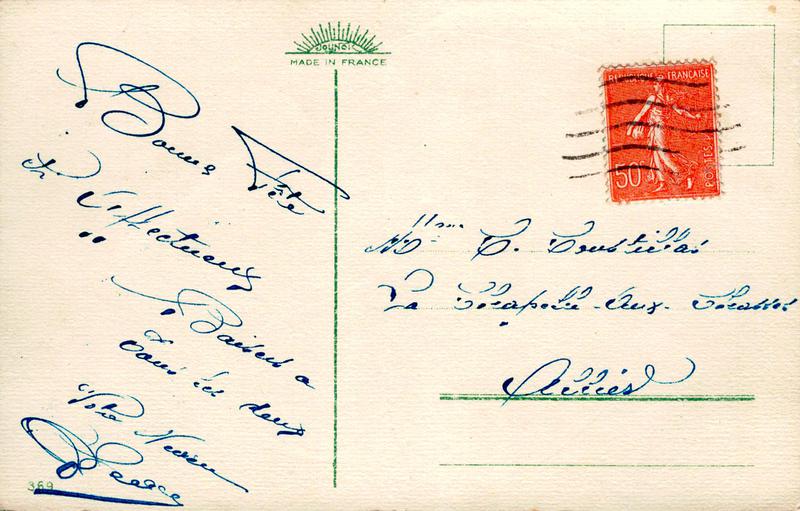 JOUNOK
MADE IN FRANCE
REPUBLIQUE FRANÇAISE
50c
POSTES
Bonne Fête
et Affectueux
Baisers a
tous les deux
Votre Neveu
369
Mme C. Coustillas
La Chapelle-Aux-Chasses
Allier